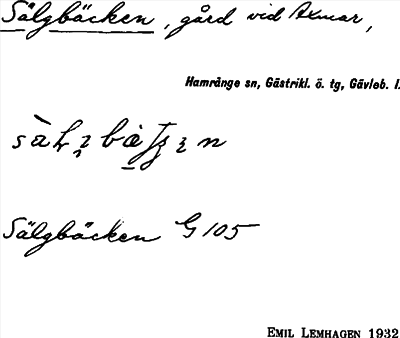 Sälgbäcken, gård vid Axmar,
Hamrånge sn, Gästrikl. ö. tg, Gävleb. l.
Sälgbäcken G 105
EMIL LEMHAGEN 1932